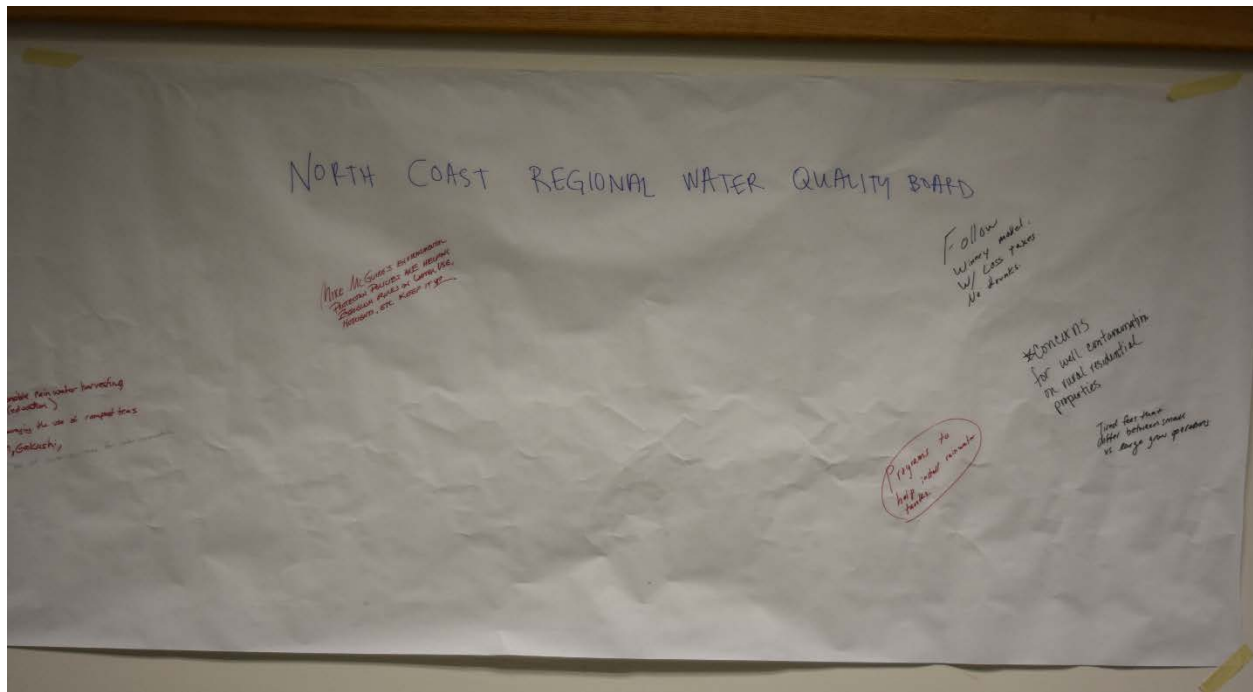 NORTH COAST REGIONAL WATER QUALITY BOARD
MIKE McGUIRE'S ENVIRONMENTAL
PROTECTION POLICIES ARE HELPING
RULES ON WATER USE,
ETC. KEEP IT UP
Follow
Winery model.
W/ Less taxes
No drunks.
*Concerns
for well contamination
on rural residential
properties
Tired fees that
differ between small
vs large grow operations
Programs to
help install rainwater
tanks.
rain water harvesting
the use of compost teas